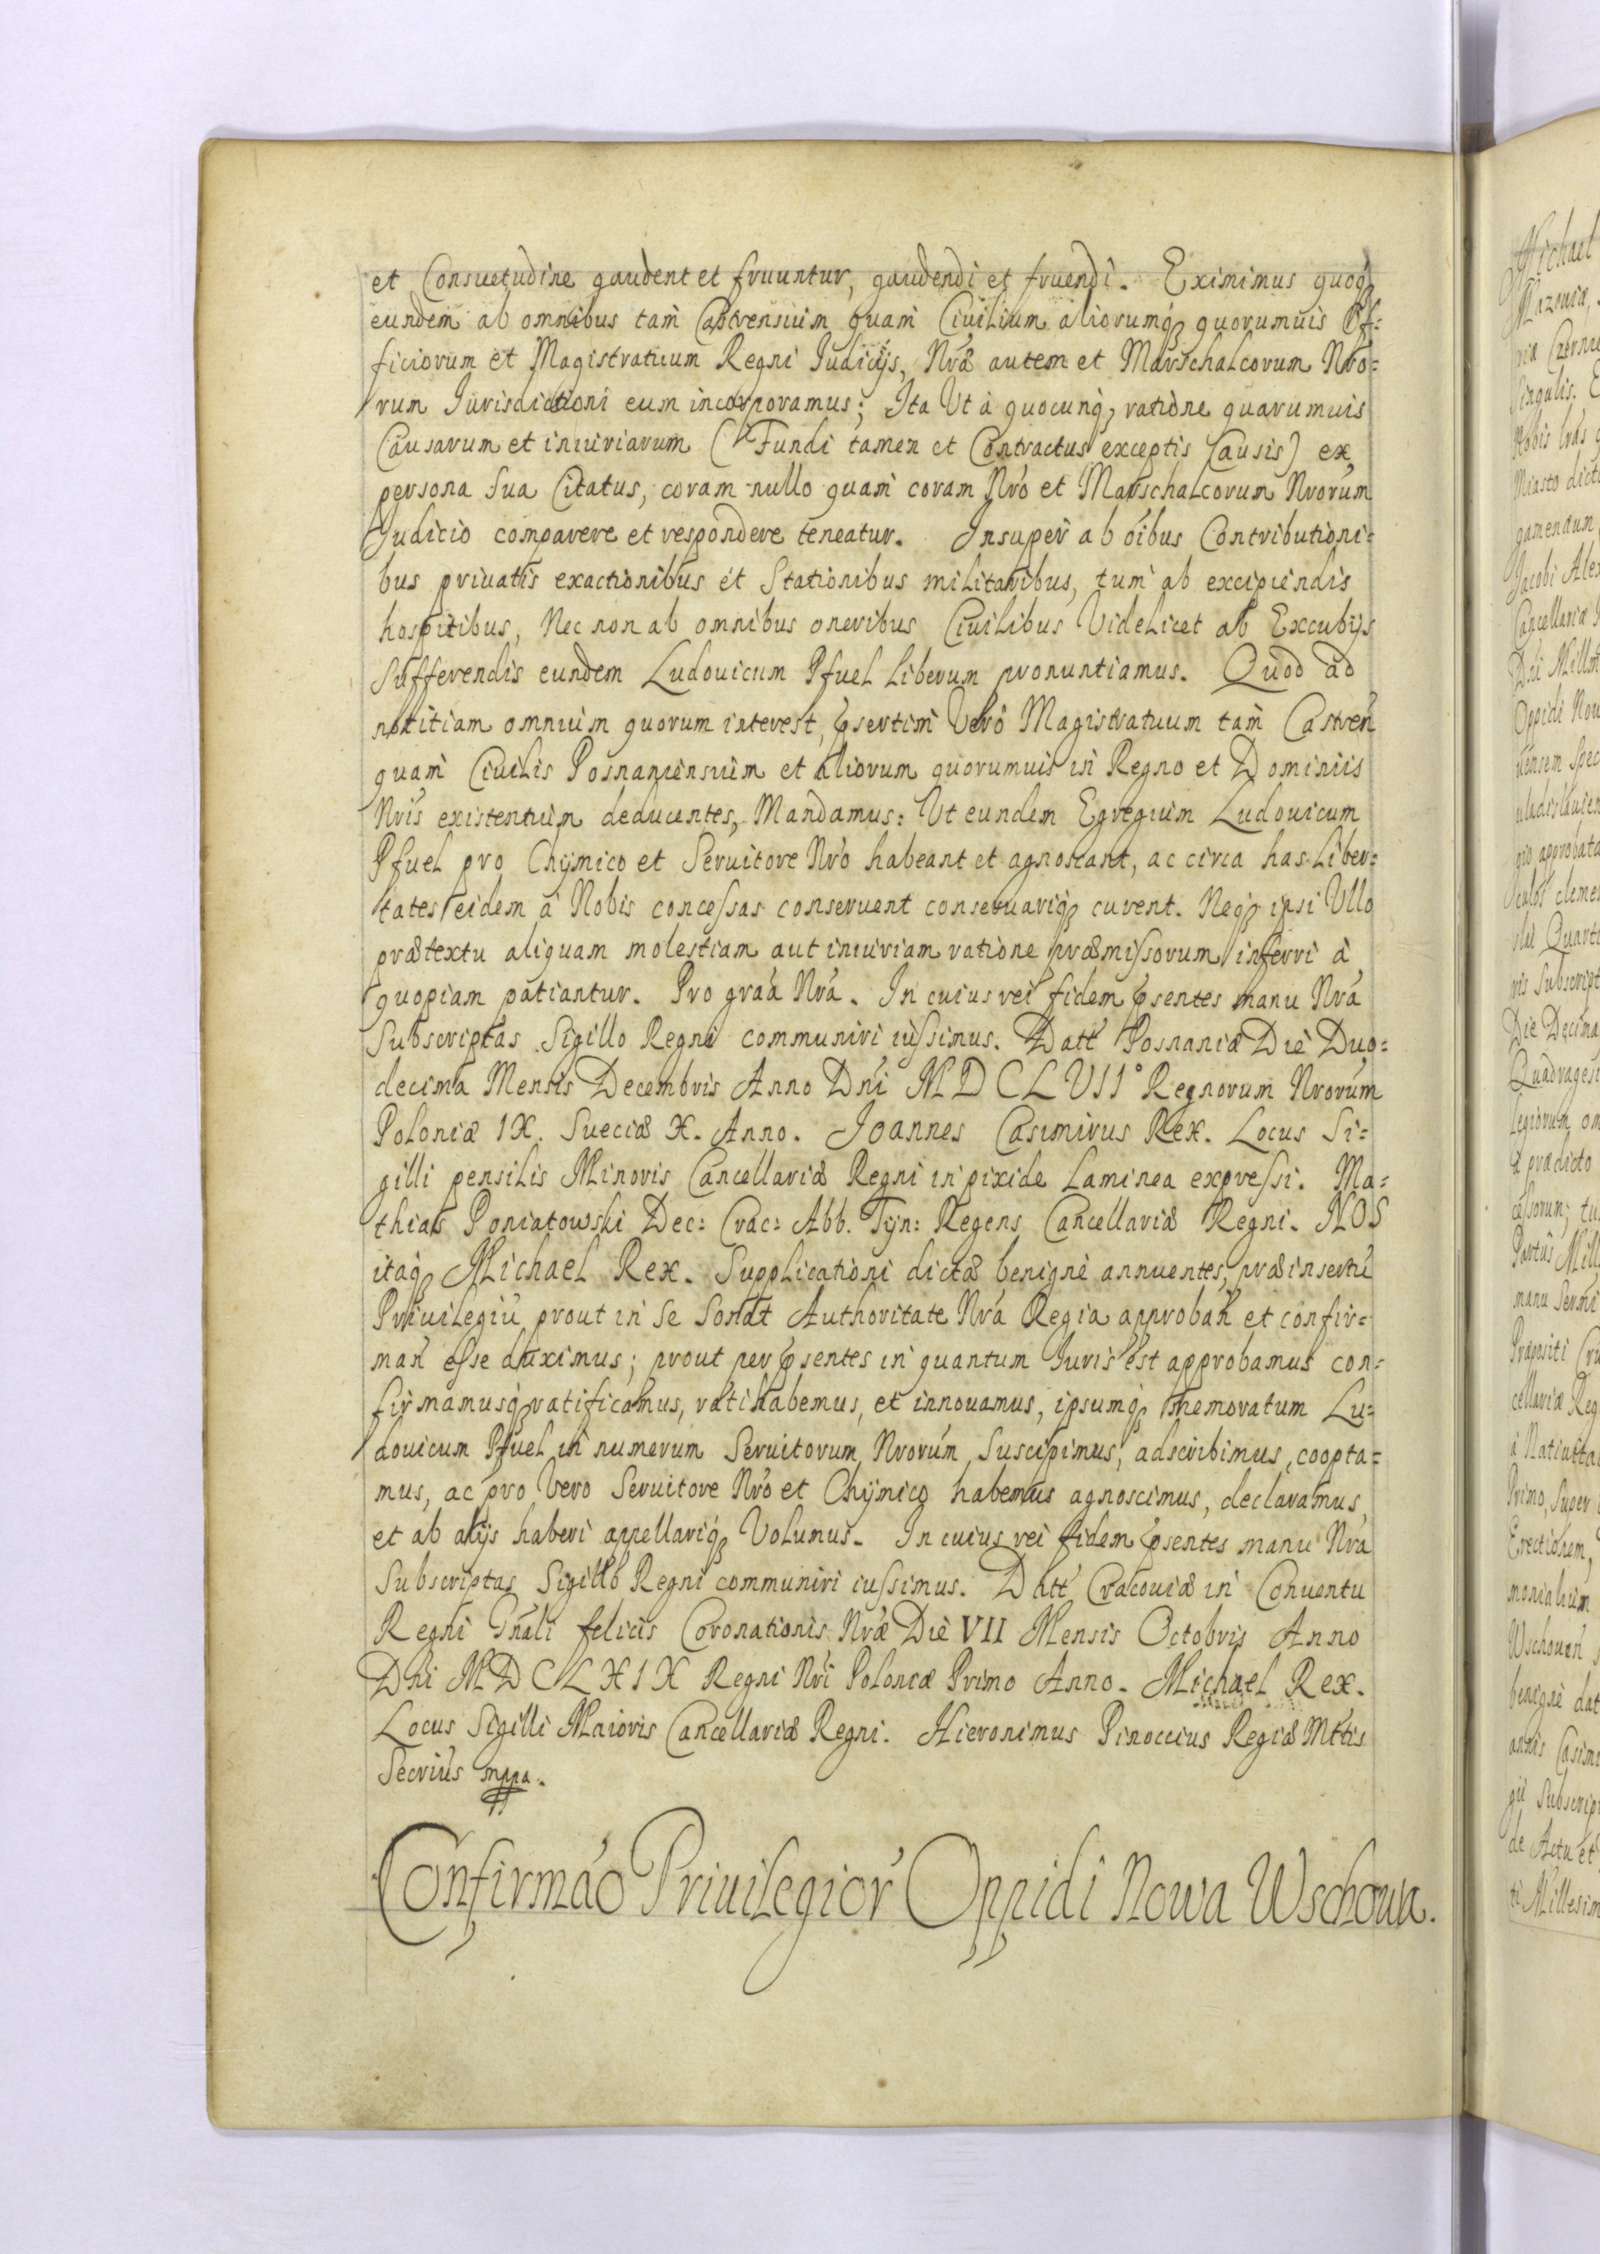 et Consuetudine gaudent et fruuntur, gaudendi et fruendi. Eximimus quoq₃
eundem ab omnibus tam Castrensium quam Ciuilium aliorumq₃ quorumuis Of=
ficiorum et Magistratuum Regni Iudicijs, Nræ autem et Marschalcorum Nro=
rum Iurisdictioni eum incorporamus; Ita Vt à quocunq₃ ratione quarumuis
Causarum et iniuriarum (Fundi tamen et Contractus exceptis Causis) ex
persona Sua Citatus, coram nullo quam coram Nro et Marschalcorum Nrorum
Iudicio comparere et respondere teneatur. Insuper ab oibus Contributioni=
bus priuatis exactionibus et Stationibus militaribus, tum ab excipiendis
hospitibus, Nec non ab omnibus oneribus Ciuilibus Videlicet ab Excubijs
Sufferendis eundem Ludouicum Pfuel liberum pronuntiamus. Quod ad
notitiam omnium quorum interest, psertim Vero Magistratuum tam Castren
quam Ciuilis Posnaniensium et aliorum quorumuis in Regno et Dominiis
Nris existentium deducentes, Mandamus: Vt eundem Egregium Ludouicum
Pfuel pro Chymico et Seruitore Nro habeant et agnoscant, ac circa has liber=
tates eidem à Nobis concessas conseruent conseruariq₃ curent. Neq₃ ipsi Vllo
prætextu aliquam molestiam aut iniuriam ratione præmissorum inferri à
quopiam patiantur. Pro graa Nra. In cuius rei fidem psentes manu Nra
Subscriptas Sigillo Regni communiri iussimus. Datt Posnaniæ Die Duo=
decima Mensis Decembris Anno Dni MDCLVII° Regnorum Nrorum
Poloniæ IX. Sueciæ X. Anno. Joannes Casimirus Rex. Locus Si=
gilli pensilis Minoris Cancellariæ Regni in pixide laminea expressi. Ma=
thias Poniatowski Dec: Crac: Abb. Tyn: Regens Cancellariæ Regni. NOS
itaq₃ Michael Rex. Supplicationi dictæ benignè annuentes, præinsertu
Priuilegiu prout in se Sonat Authoritate Nra Regia approban et confir=
man esse duximus; prout per psentes in quantum Iuris est approbamus con=
firmamusq₃ ratificamus, ratihabemus, et innouamus, ipsumq₃ memoratum Lu=
douicum Pfuel in numerum Seruitorum Nrorum Suscipimus, adscribimus, coopta=
mus, ac pro Vero Seruitore Nro et Chymico habemus agnoscimus, declaramus,
et ab alijs haberi appellariq₃ Volumus. In cuius rei fidem psentes manu Nra
Subscriptas Sigillo Regni communiri iussimus. Datt Cracouiæ in Conuentu
Regni Gnali felicis Coronationis Nræ Die VII Mensis Octobris Anno
Dni MDCLXIX Regni Nri Poloniæ Primo Anno. Michael Rex.
Locus Sigilli Maioris Cancellariæ Regni. Hieronimus Pinoccius Regiæ Mttis
Secrius mppa.
Confirmao Priuilegior Oppidi Nowa Wschowa.